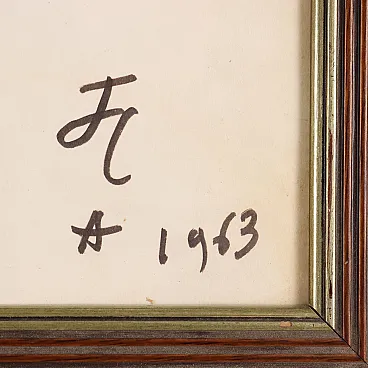 JC
A 1963